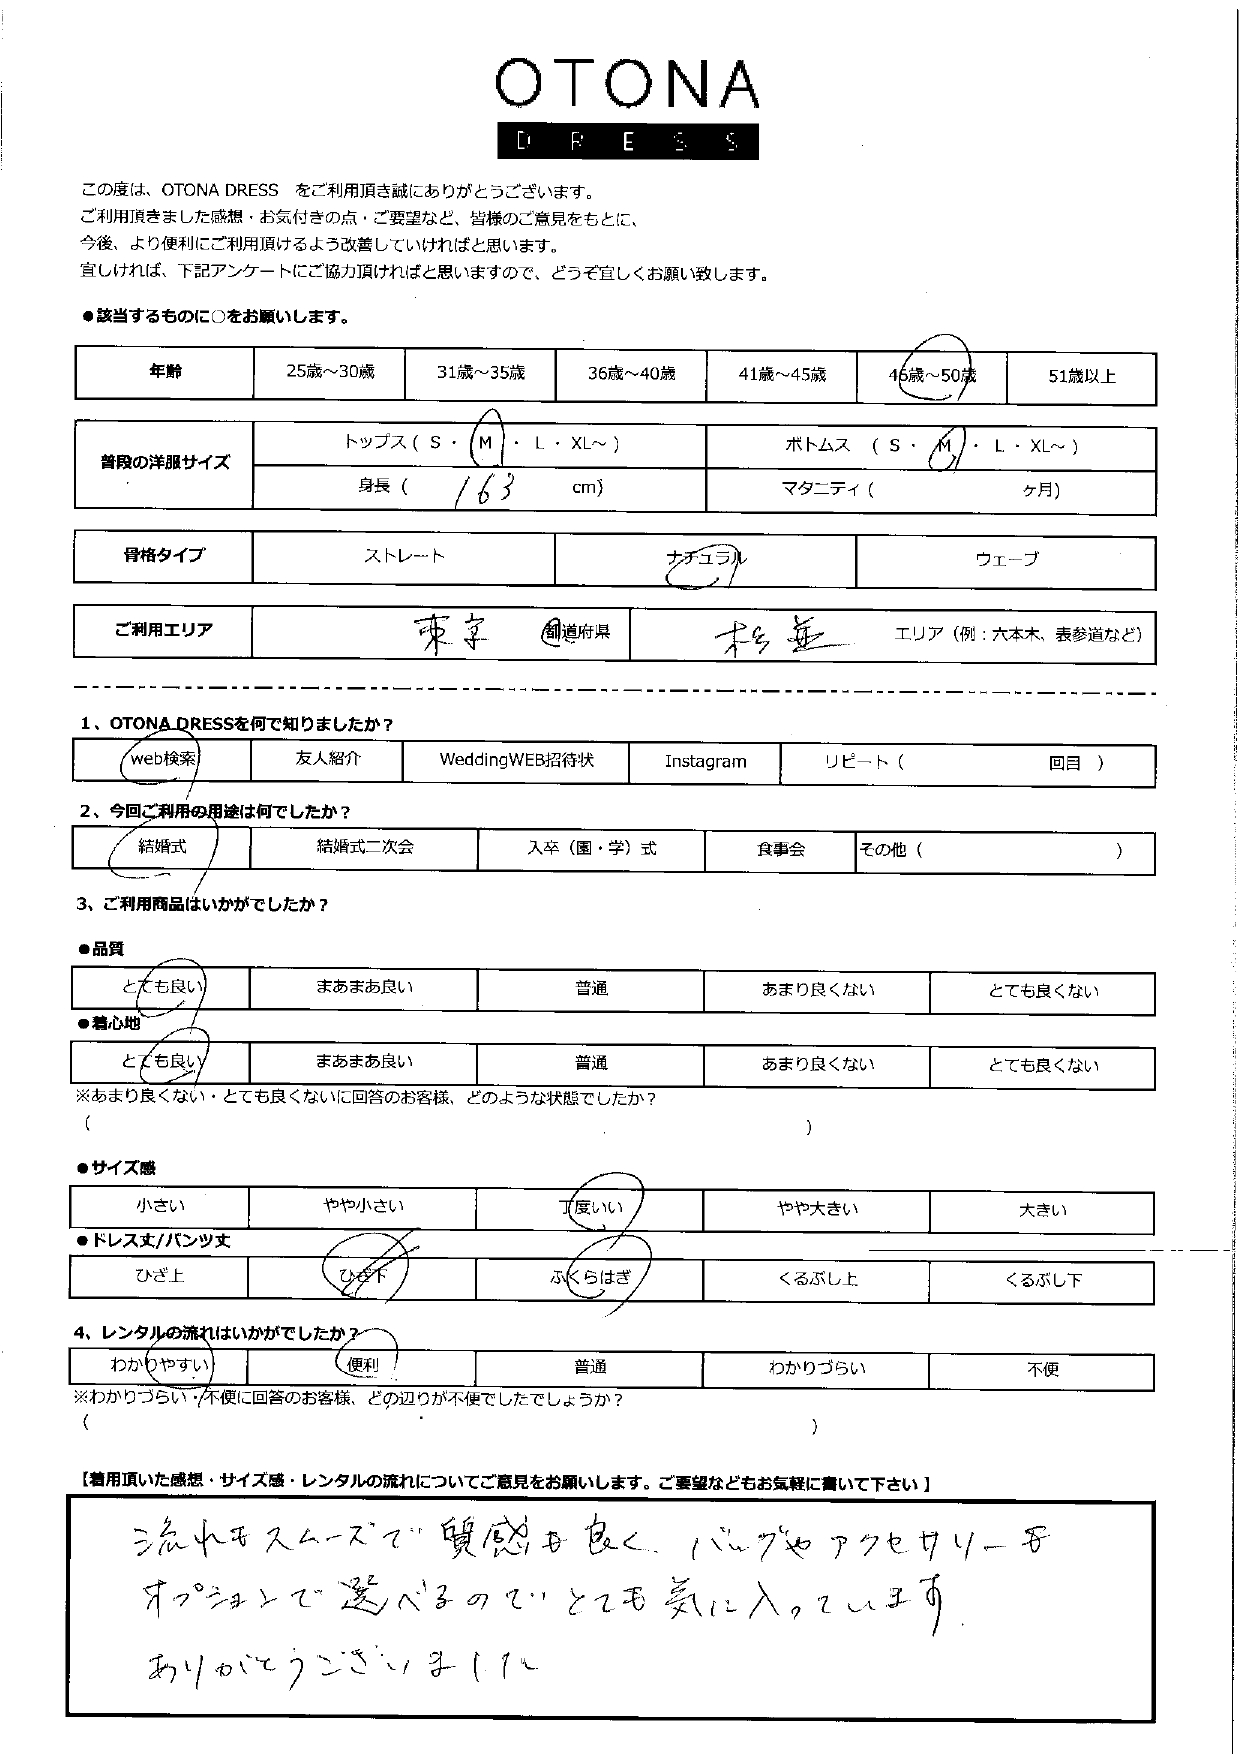 OTONA
DRESS
この度は、OTONA DRESS　をご利用頂き誠にありがとうございます。
ご利用頂きました感想・お気付きの点・ご要望など、皆様のご意見をもとに、
今後、より便利にご利用頂けるよう改善していければと思います。
宜しければ、下記アンケートにご協力頂ければと思いますので、どうぞ宜しくお願い致します。
●該当するものに○をお願いします。
年齢 25歳～30歳 31歳～35歳 36歳～40歳 41歳～45歳 46歳～50歳 51歳以上
普段の洋服サイズ トップス ( S ・ M ・ L ・ XL～ ) ボトムス ( S ・ M ・ L ・ XL～ )
身長 ( 163 cm) マタニティ ( ヶ月)
骨格タイプ ストレート ナチュラル ウェーブ
ご利用エリア 東京 都道府県 杉並 エリア（例：六本木、表参道など）
1、OTONA DRESSを何で知りましたか？
web検索 友人紹介 WeddingWEB招待状 Instagram リピート ( 回目 )
2、今回ご利用の用途は何でしたか？
結婚式 結婚式二次会 入卒（園・学）式 食事会 その他 ( )
3、ご利用商品はいかがでしたか？
●品質
とても良い まあまあ良い 普通 あまり良くない とても良くない
●着心地
とても良い まあまあ良い 普通 あまり良くない とても良くない
※あまり良くない・とても良くないに回答のお客様、どのような状態でしたか？
( )
●サイズ感
小さい やや小さい 丁度いい やや大きい 大きい
●ドレス丈/パンツ丈
ひざ上 ひざ下 ふくらはぎ くるぶし上 くるぶし下
4、レンタルの流れはいかがでしたか？
わかりやすい 便利 普通 わかりづらい 不便
※わかりづらい・不便に回答のお客様、どの辺りが不便でしたでしょうか？
( )
【着用頂いた感想・サイズ感・レンタルの流れについてご意見をお願いします。ご要望などもお気軽に書いて下さい】
流れもスムーズで質感も良く、バッグやアクセサリーも
オプションで選べるのでとても気に入っています。
ありがとうございました